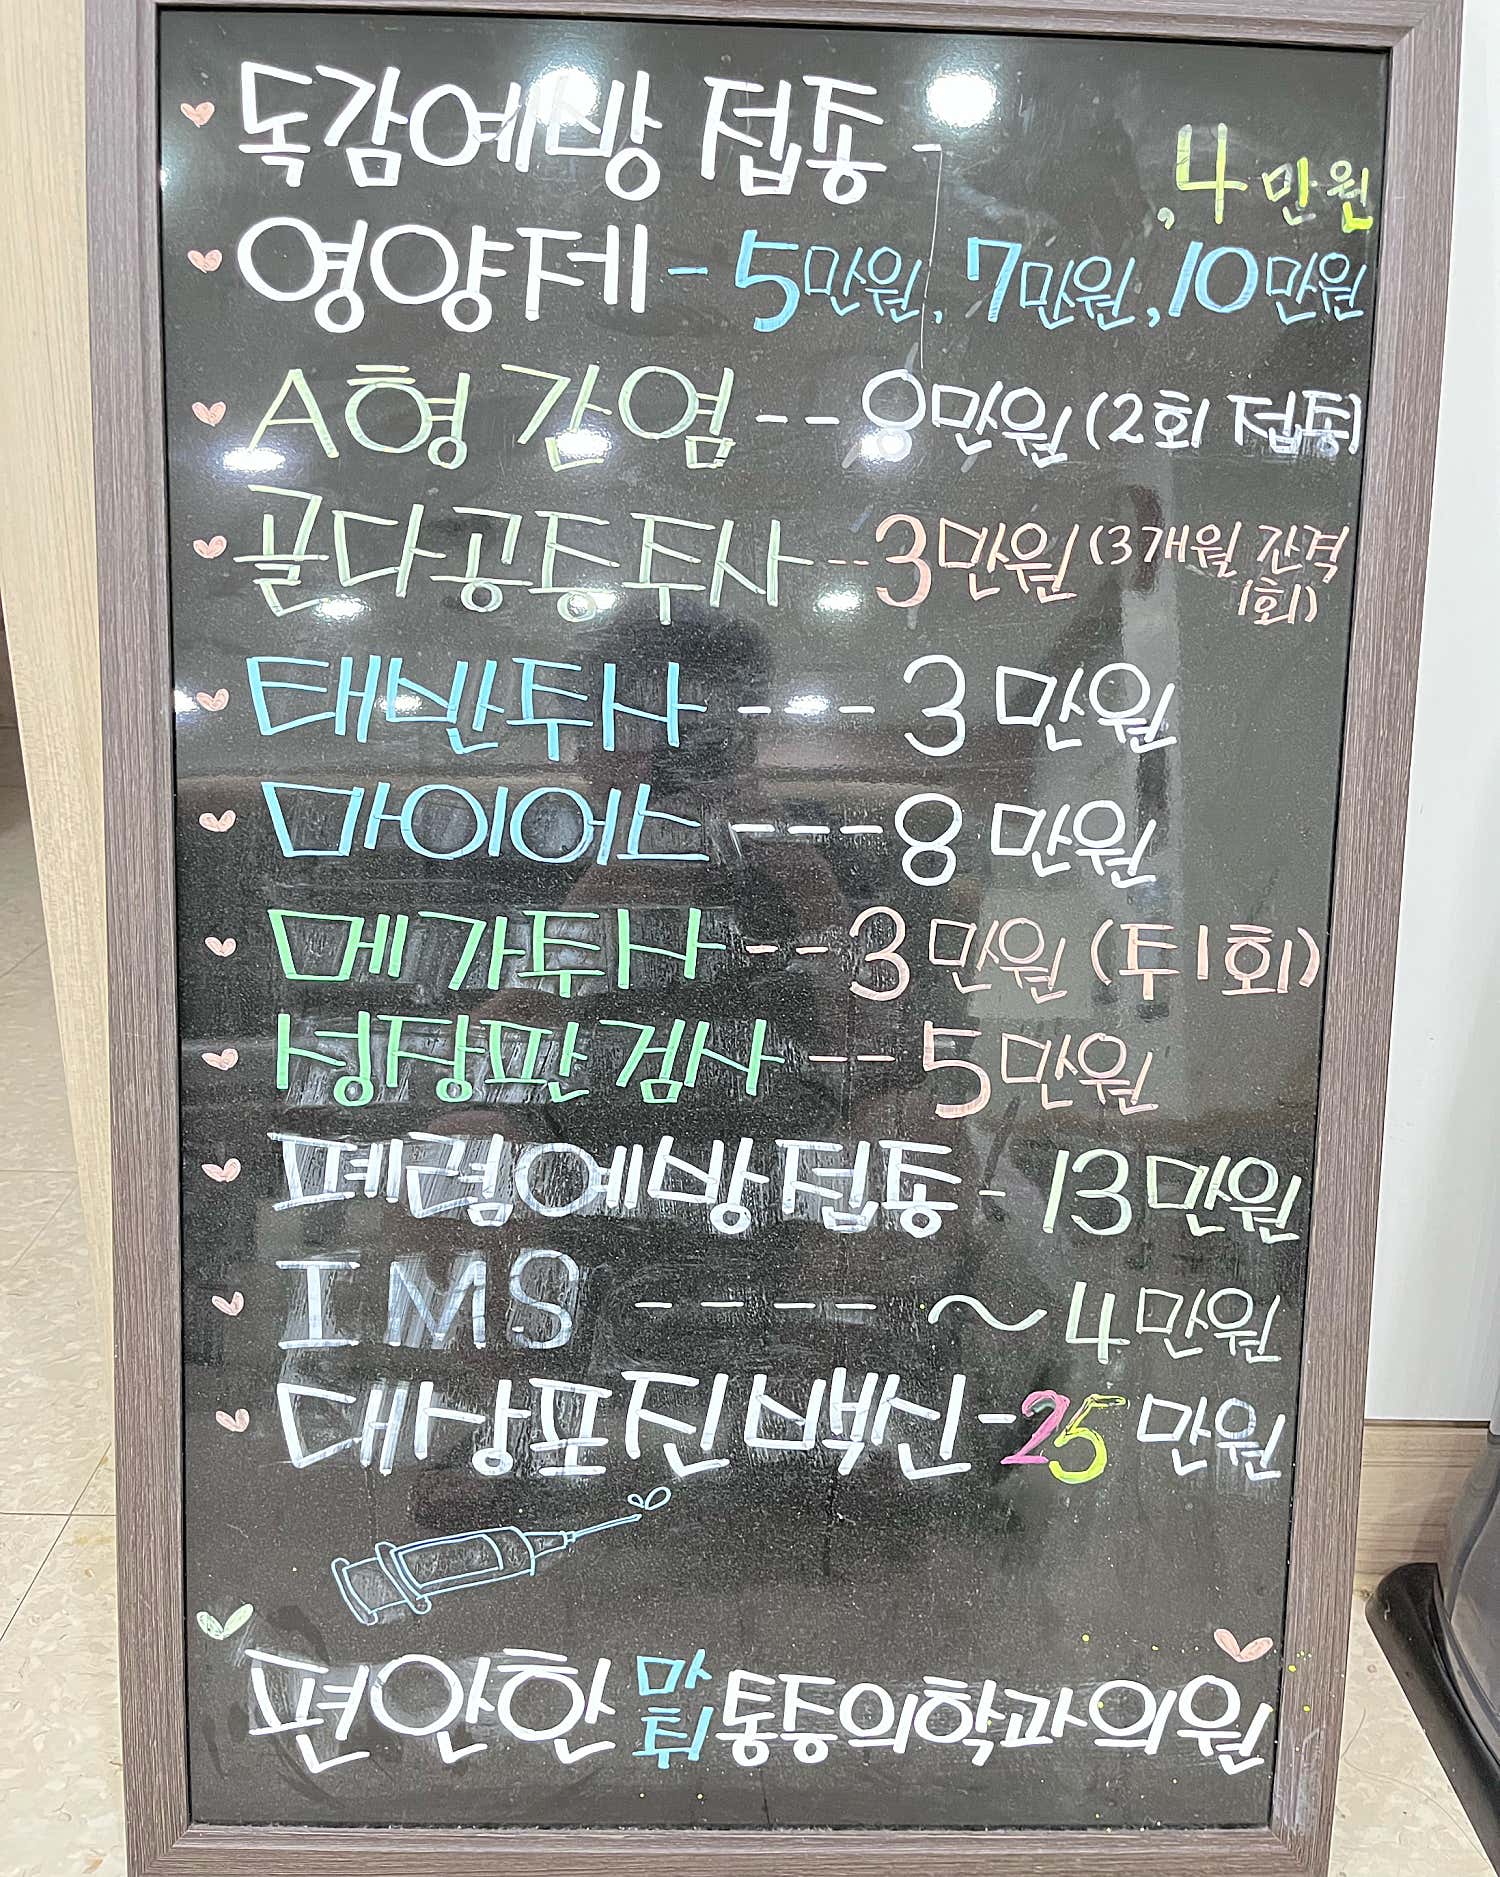 독감예방 접종 - ,4만원
영양제 - 5만원, 7만원, 10만원
A형 간염 -- 8만원 (2회 접종)
골다공증투사 -- 3만원 (3개월 간격
1회)
태반투사 --- 3만원
마이어스 --- 8만원
메가투사 -- 3만원 (투1회)
성장판 검사 -- 5만원
폐렴예방접종 - 13만원
IMS ---- ~4만원
대상포진 백신 - 25만원
편안한 마취통증의학과의원